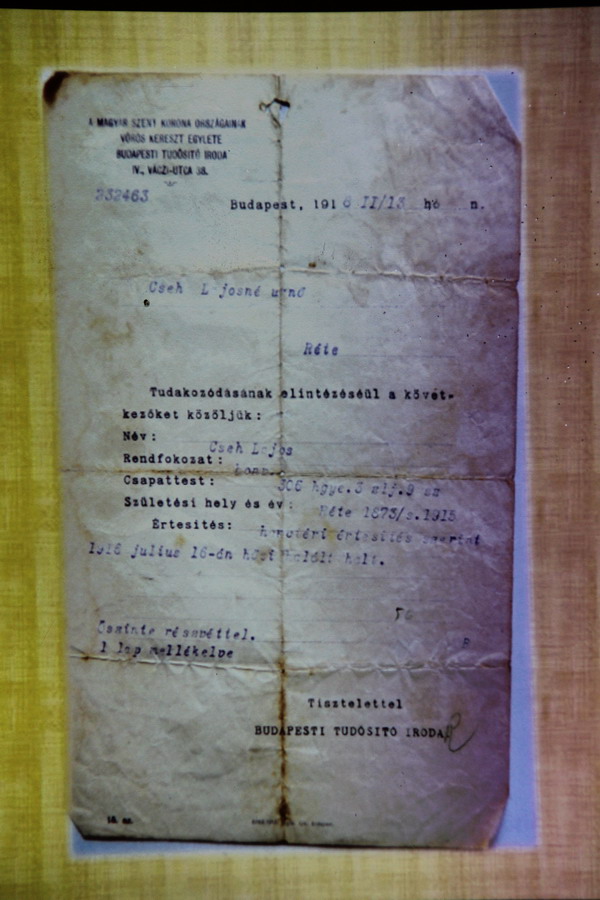 A MAGYAR SZENT KORONA ORSZÁGAINAK
VÖRÖS KERESZT EGYLETE
BUDAPESTI TUDÓSITÓ IRODA
IV., VÁCZI-UTCA 38.
232463
Budapest, 1916 II/13 hó n.
Cseh Lajosné urnő
Réte
Tudakozódásának elintézéséül a követ-
kezőket közöljük:
Név: Cseh Lajos
Rendfokozat: honv.
Csapattest: 306 hgye. 3 zlj. 9 sz
Születési hely és év: Réte 1873/s. 1915
Értesités: harctéri értesités szerint
1916 julius 16-án hősi halált halt.
Őszinte részvéttel.
1 lap mellékelve
Tisztelettel
BUDAPESTI TUDÓSITÓ IRODA